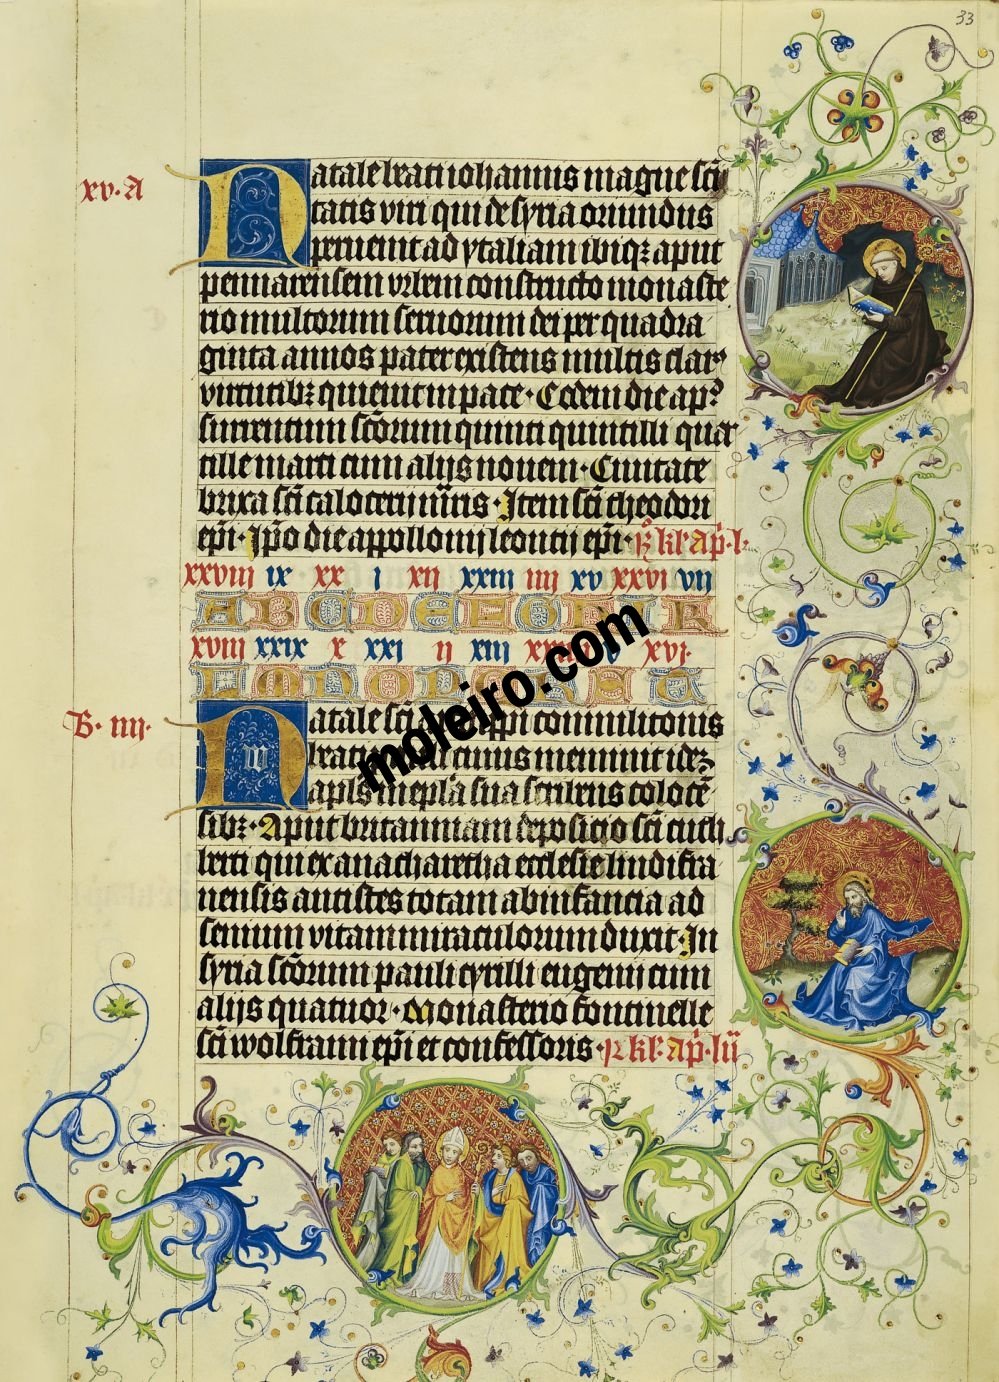 33
xv · A
Natale beati iohannis magne scti
tatis viri qui de syria oriundus
peruenit ad ytaliam ibiqz aput
pennarensem vrbem constructo monaste
rio multorum seruorum dei per quadra
ginta annos pater existens multis clarꝰ
virtutibz quieuit in pace · Eodem die ap
surrentum sctorum quinti quintilli quar
tille marci cum alijs nouem · Ciuitate
brixa scti caloceri mris · Item scti theodori
epi · Ipo die appollonij leontij epi · kl apr l
xxviii ix xx i xii xxiii iiii xv xxvi vii
A B C D E F G H I K
xviii xxix x xxi ii xiii xvi
L M N O P Q R S T
B · iiii ·
Natale scti commilitonis
beati cuius meminit idez
apls in epla sua scribens coloce
sibz · Aput britanniam depositio scti cuth
berti qui ex anachareta ecclesie lindisfa
nensis antistes totam ab infancia ad
senium vitam miraculorum duxit · In
syria sctorum pauli cyrilli eugenij cum
alijs quatuor · Monasterio fontinelle
scti wolfranni epi et confessoris · kl apr lii
moleiro.com